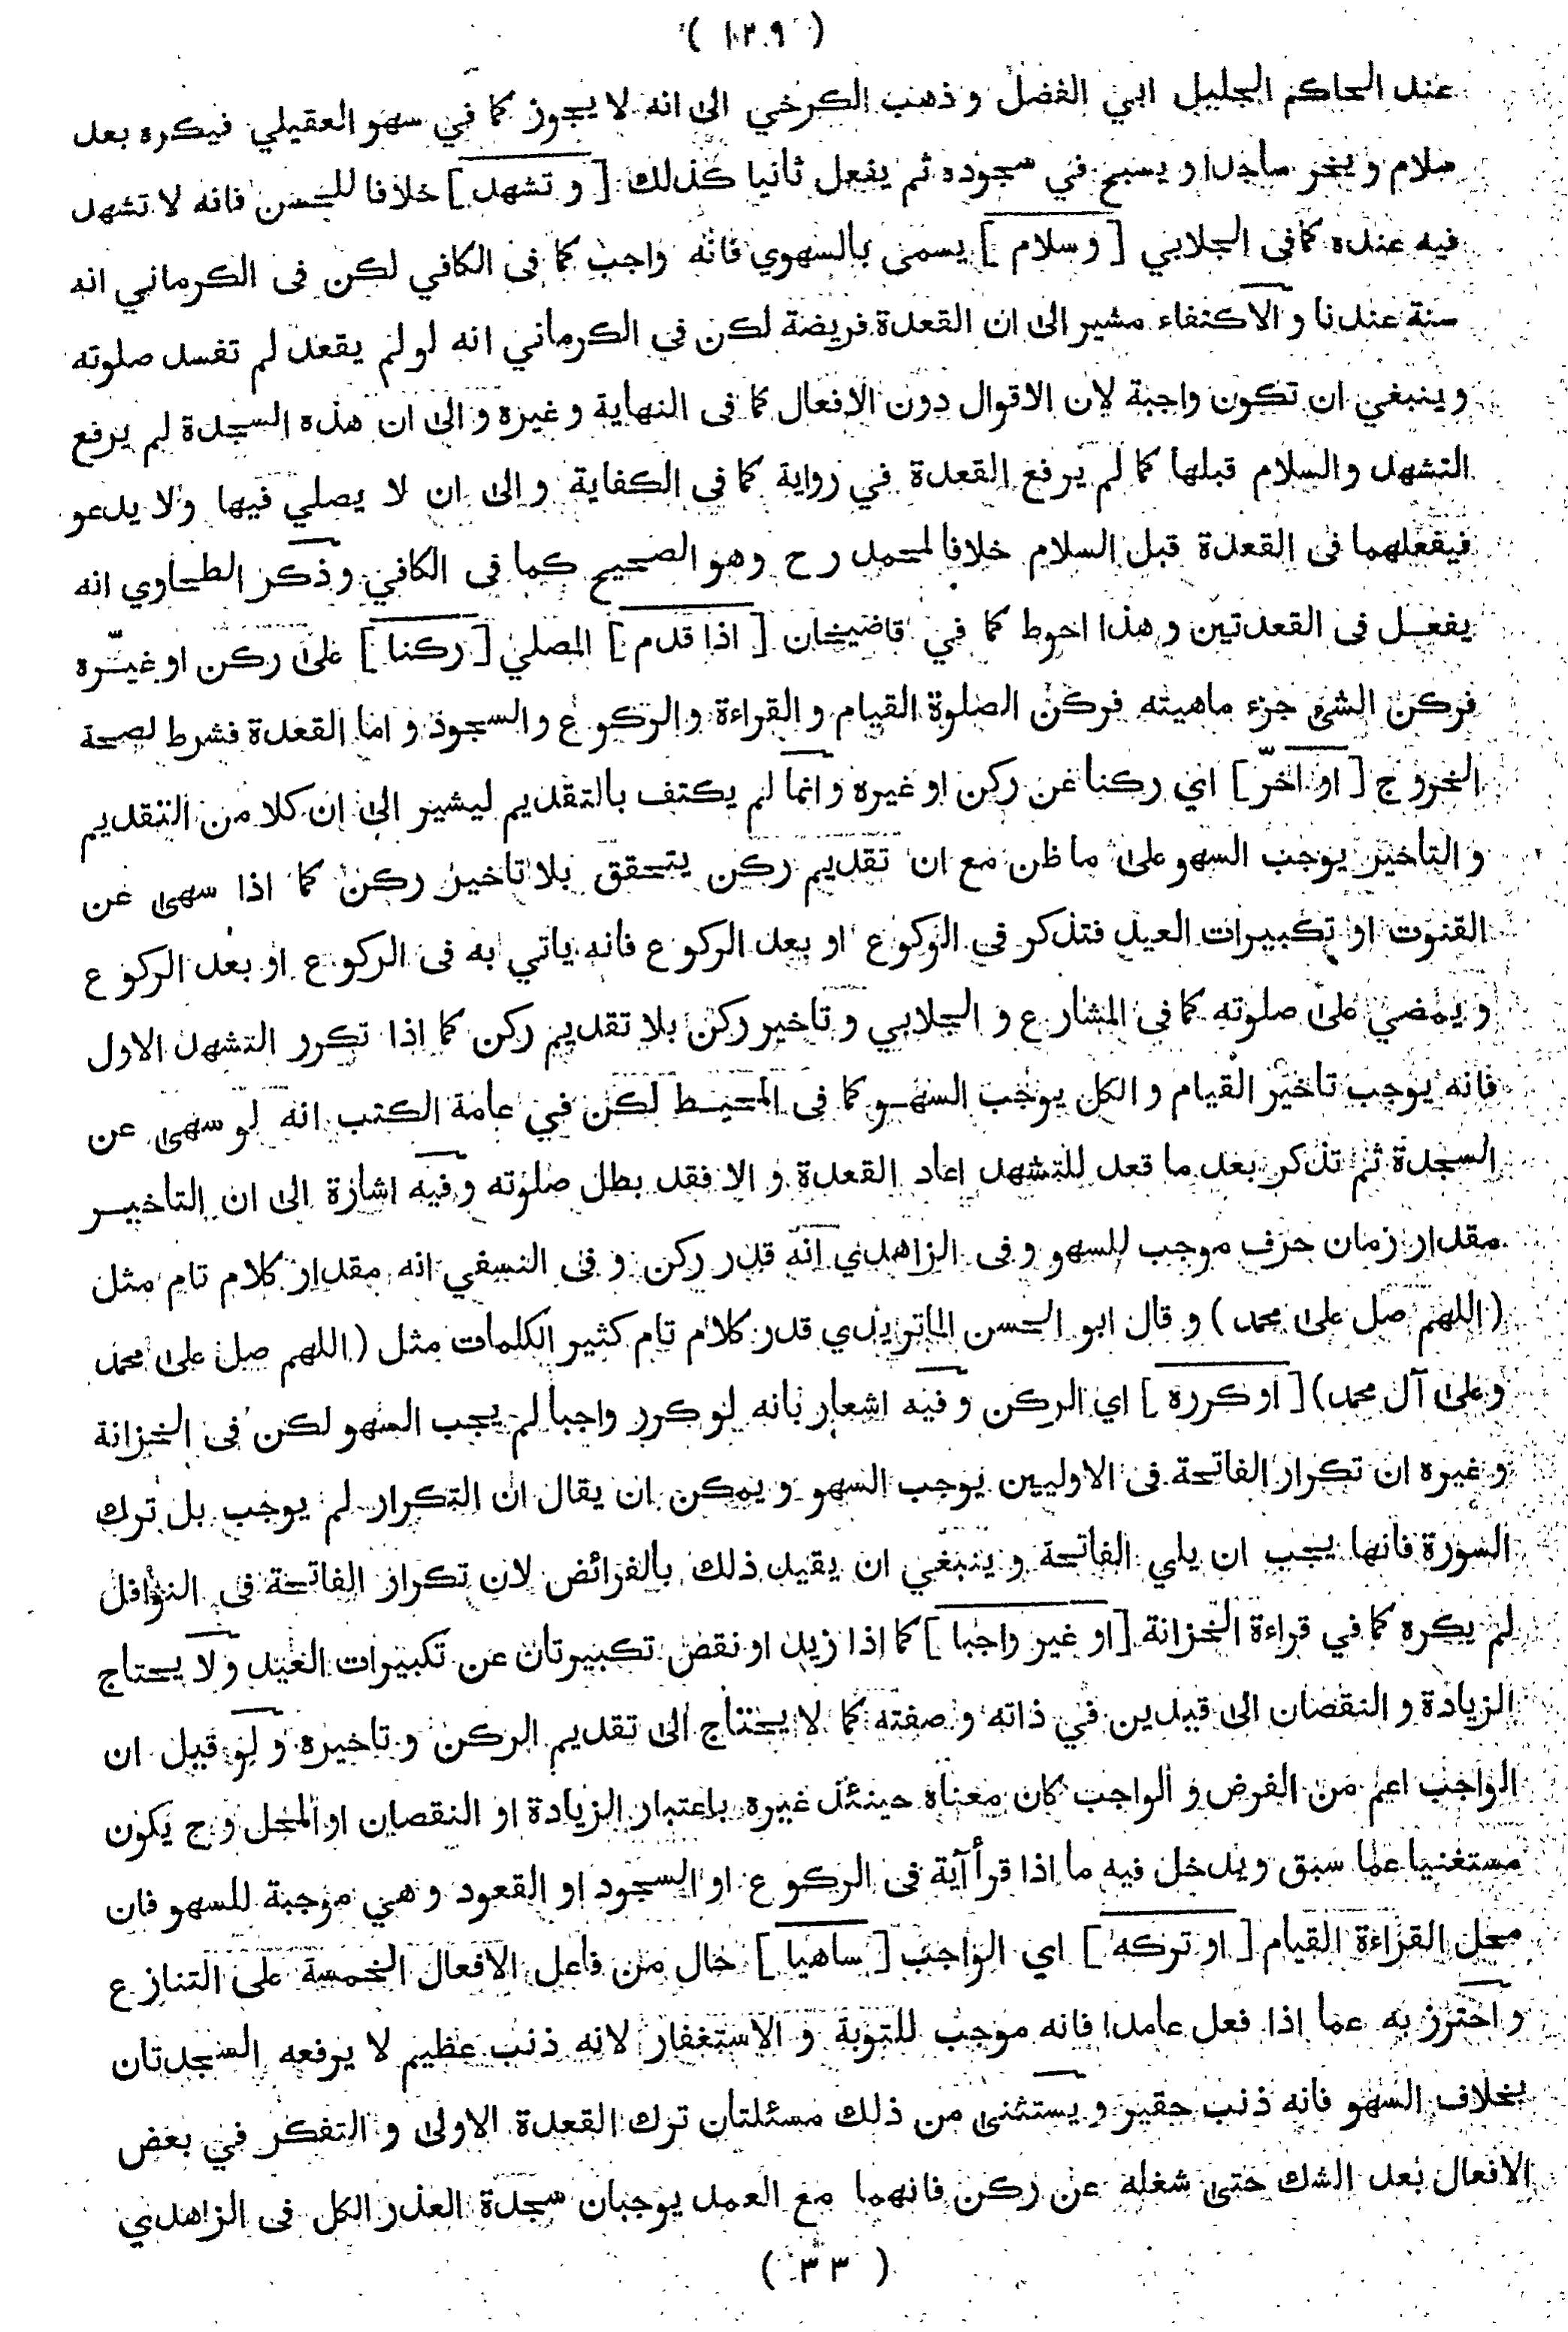 ( ١٢٩ )
عند الحاكم الجليل ابي الفضل و ذهب الكرخي الى انه لا يجوز كما في سهو العقيلي فيكره بعد
سلام و يخر ساجدا و يسبح في سجوده ثم يفعل ثانيا كذلك [ و تشهد ] خلافا للحسن فانه لا تشهد
فيه عنده كما فى الجلابي [ و سلام ] يسمى بالسهوي فانه واجب كما فى الكافي لكن فى الكرماني انه
سنة عندنا و الاكتفاء مشير الى ان القعدة فريضة لكن في الكرماني انه لو لم يقعد لم تفسد صلوته
و ينبغي ان تكون واجبة لان الاقوال دون الافعال كما فى النهاية و غيره و الى ان هذه السجدة لم يرفع
التشهد والسلام قبلها كما لم يرفع القعدة في رواية كما فى الكفاية و الى ان لا يصلي فيها ولا يدعو
فيفعلهما فى القعدة قبل السلام خلافا لمحمد رح وهو الصحيح كما فى الكافي و ذكر الطحاوي انه
يفعل فى القعدتين و هذا احوط كما في قاضيخان [ اذا قدم ] المصلي [ ركنا ] على ركن او غيره
فركن الشئ جزء ماهيته فركن الصلوة القيام و القراءة و الركوع و السجود و اما القعدة فشرط لصحة
الخروج [ او اخّر ] اي ركنا عن ركن او غيره و انما لم يكتف بالتقديم ليشير الى ان كلا من التقديم
و التاخير يوجب السهو على ما ظن مع ان تقديم ركن يتحقق بلا تاخير ركن كما اذا سهى عن
القنوت او تكبيرات العيد فتذكر في الركوع او بعد الركوع فانه ياتي به فى الركوع او بعد الركوع
و يمضي على صلوته كما فى المشارع و الجلابي و تاخير ركن بلا تقديم ركن كما اذا تكرر التشهد الاول
فانه يوجب تاخير القيام و الكل يوجب السهو كما فى المحيط لكن في عامة الكتب انه لو سهى عن
السجدة ثم تذكر بعد ما قعد للتشهد اعاد القعدة و الا فقد بطل صلوته و فيه اشارة الى ان التأخير
مقدار زمان حرف موجب للسهو و فى الزاهدي انه قدر ركن و فى النسفي انه مقدار كلام تام مثل
( اللهم صل على محمد ) و قال ابو الحسن الماتريدي قدر كلام تام كثير الكلمات مثل ( اللهم صل على محمد
و على آل محمد ) [ او كرره ] اي الركن و فيه اشعار بانه لو كرر واجبا لم يجب السهو لكن فى الخزانة
و غيره ان تكرار الفاتحة فى الاوليين يوجب السهو و يمكن ان يقال ان التكرار لم يوجب بل ترك
السورة فانها يجب ان يلي الفاتحة و ينبغي ان يقيد ذلك بالفرائض لان تكرار الفاتحة فى النوافل
لم يكره كما في قراءة الخزانة [ او غير واجبا ] كما اذا زيد او نقص تكبيرتان عن تكبيرات العيد و لا يحتاج
الزيادة و النقصان الى قيدين في ذاته و صفته كما لا يحتاج الى تقديم الركن و تاخيره و لو قيل ان
الواجب اعم من الفرض و الواجب كان معناه حينئذ غيره باعتبار الزيادة او النقصان او المحل و ح يكون
مستغنيا عما سبق و يدخل فيه ما اذا قرأ آية فى الركوع او السجود او القعود و هي موجبة للسهو فان
محل القراءة القيام [ او تركه ] اي الواجب [ ساهيا ] حال من فاعل الافعال الخمسة على التنازع
و احترز به عما اذا فعل عامدا فانه موجب للتوبة و الاستغفار لانه ذنب عظيم لا يرفعه السجدتان
بخلاف السهو فانه ذنب حقير و يستثنى من ذلك مسئلتان ترك القعدة الاولى و التفكر في بعض
الافعال بعد الشك حتى شغله عن ركن فانهما مع العمد يوجبان سجدة العذر الكل فى الزاهدي
( ٣٣ )